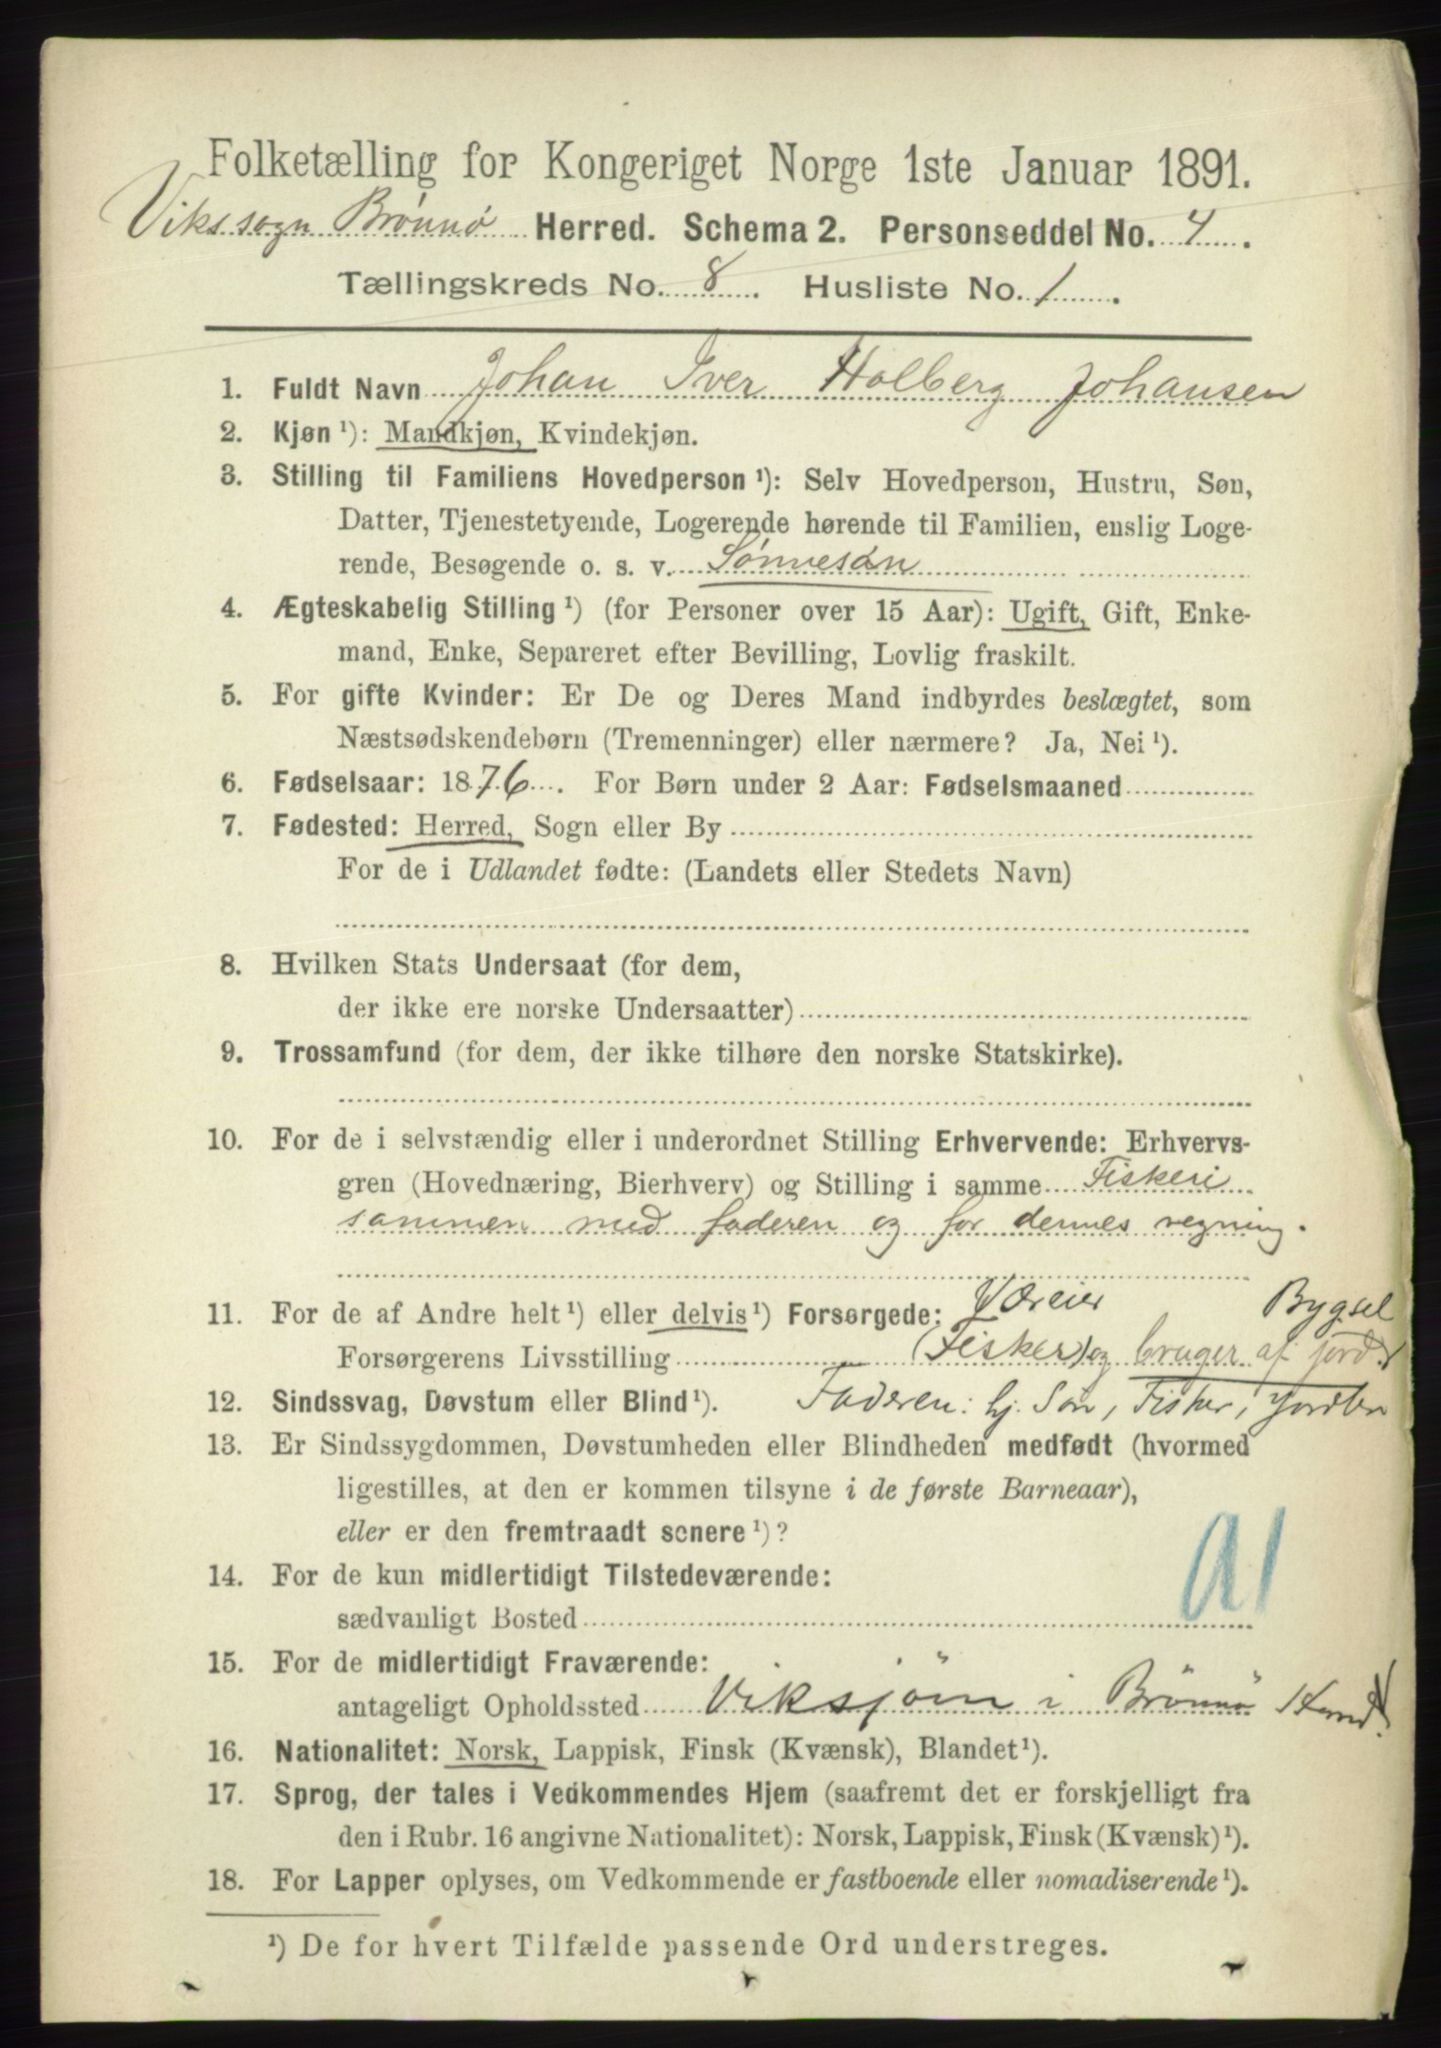 Folketælling for Kongeriget Norge 1ste Januar 1891.
Vikssogn Brønnø Herred. Schema 2. Personseddel No. 4.
Tællingskreds No. 8. Husliste No. 1.
1. Fuldt Navn Johan Iver Holberg Johansen
2. Kjøn ¹): Mandkjøn, Kvindekjøn.
3. Stilling til Familiens Hovedperson ¹): Selv Hovedperson, Hustru, Søn,
Datter, Tjenestetyende, Logerende hørende til Familien, enslig Loge-
rende, Besøgende o. s. v. Sønnesøn
4. Ægteskabelig Stilling ¹) (for Personer over 15 Aar): Ugift, Gift, Enke-
mand, Enke, Separeret efter Bevilling, Lovlig fraskilt.
5. For gifte Kvinder: Er De og Deres Mand indbyrdes beslægtet, som
Næstsødskendebørn (Tremenninger) eller nærmere? Ja, Nei ¹).
6. Fødselsaar: 1876. For Børn under 2 Aar: Fødselsmaaned
7. Fødested: Herred, Sogn eller By
For de i Udlandet fødte: (Landets eller Stedets Navn)
8. Hvilken Stats Undersaat (for dem,
der ikke ere norske Undersaatter)
9. Trossamfund (for dem, der ikke tilhøre den norske Statskirke).
10. For de i selvstændig eller i underordnet Stilling Erhvervende: Erhvervs-
gren (Hovednæring, Bierhverv) og Stilling i samme Fiskeri
sammen med faderen og for dennes regning.
11. For de af Andre helt ¹) eller delvis ¹) Forsørgede: Bygsel
Forsørgerens Livsstilling (Fisker) og bruger af jord
12. Sindssvag, Døvstum eller Blind ¹). Faderen: hj. Søn, Fisker, Jordbr
13. Er Sindssygdommen, Døvstumheden eller Blindheden medfødt (hvormed
ligestilles, at den er kommen tilsyne i de første Barneaar),
eller er den fremtraadt senere ¹)?
14. For de kun midlertidigt Tilstedeværende:
sædvanligt Bosted
a1
15. For de midlertidigt Fraværende:
antageligt Opholdssted Viksjöin i Brönnö
16. Nationalitet: Norsk, Lappisk, Finsk (Kvænsk), Blandet ¹).
17. Sprog, der tales i Vedkommendes Hjem (saafremt det er forskjelligt fra
den i Rubr. 16 angivne Nationalitet): Norsk, Lappisk, Finsk (Kvænsk) ¹).
18. For Lapper oplyses, om Vedkommende er fastboende eller nomadiserende ¹).
¹) De for hvert Tilfælde passende Ord understreges.